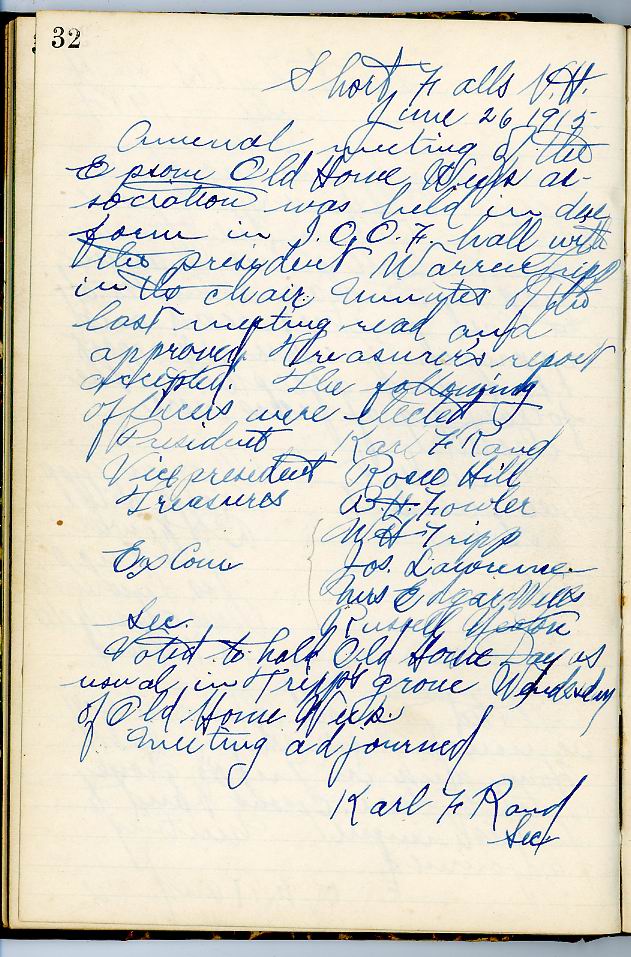 32
Short Falls N.H.
June 26 1915
Annual meeting of the
Epsom Old Home Week as-
sociation was held in due
form in I.O.O.F. hall with
the president Warren Tripp
in the chair. Minutes of the
last meeting read and
approved. Treasurer's report
accepted. The following
officers were elected
President Karl F Rand
Vice president Rosco Hill
Treasurer B.H. Fowler
W H Tripp
Ex Com Jos. Lawrence
Mrs Edgar Wells
Sec. Russell Yeaton
Voted to hold Old Home Day as
usual in Tripps grove Wendsday
of Old Home Week.
Meeting adjourned
Karl F Rand
Sec